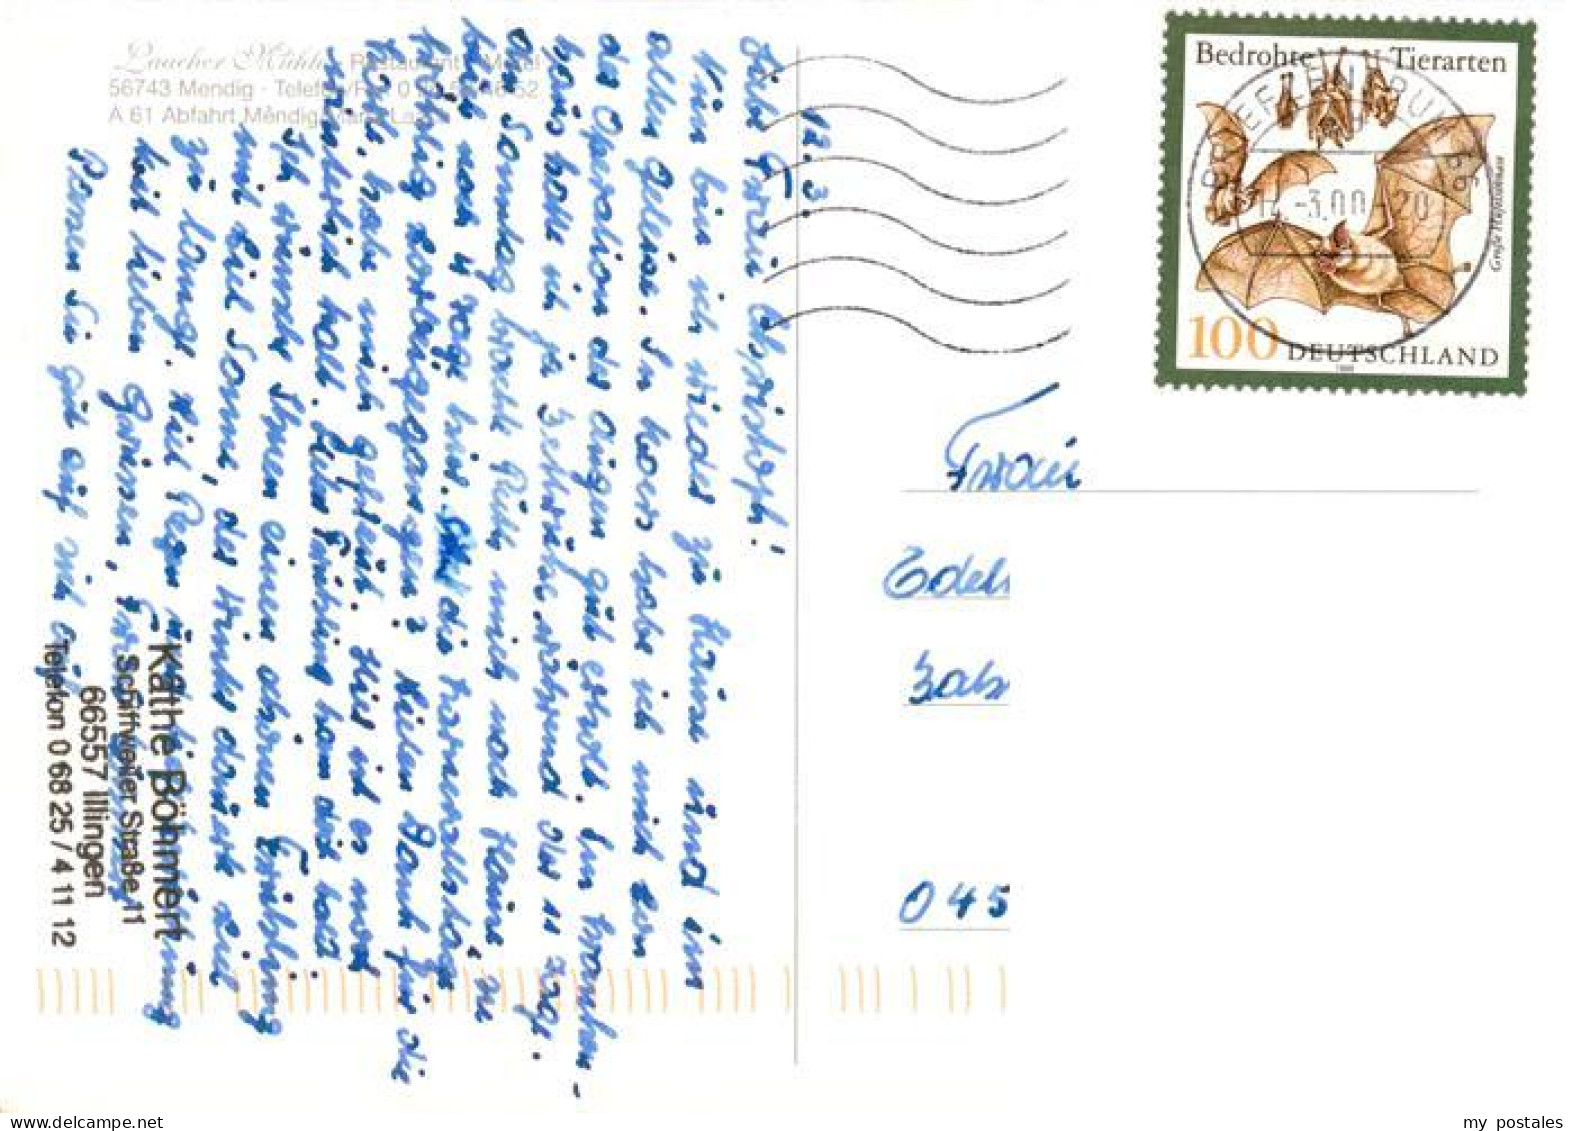 Laacher Mühle Restaurant - Motel
56743 Mendig - Telefon/Fax 0
A 61 Abfahrt Mendig/Maria Laach
12.3.
Liebe Frau Christoph!
Nun bin ich wieder zu Hause und im
alten Geleise. In Moers habe ich mich von
der Operation der Augen gut erholt. Im Kranken-
haus hatte ich ja Bettruhe während der 11 Tage.
am Sonntag brachte Ruth mich nach Hause, sie
blieb noch 4 Tage hier. Sind die Karnevalstage
fröhlich vorbeigegangen? Vielen Dank für die
Karte, habe mich gefreut. Hier ist es noch
winterlich kalt. Der Frühling kann doch bald
Ich wünsche Ihnen einen schönen Frühling
mit viel Sonne, der Winter dauert viel
zu lange. Viel Regen
Mit lieben Grüssen,
Passen Sie gut auf sich auf
Käthe Böhmert
Schiffweiler Straße 11
66557 Illingen
Telefon 0 68 25 / 4 11 12
Bedrohte Tierarten
Große Hufeisennase
100 DEUTSCHLAND
-3.00-20
Frau
Edel
045
my postales